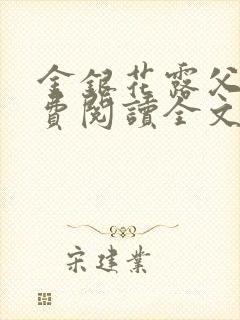 金銀花露父
費閱讀全文
宋建業